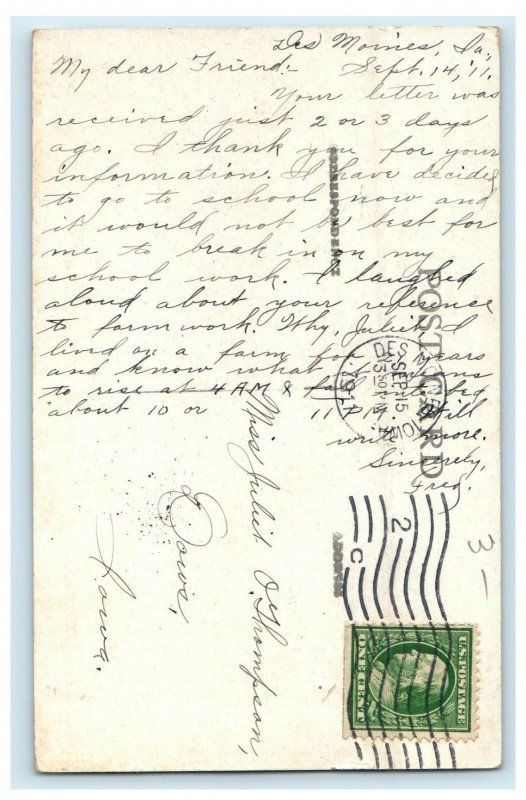 Des Moines, Ia.,
My dear Friend:- Sept. 14, '11.
Your letter was
received just 2 or 3 days
ago. I thank you for your
information. I have decided
to go to school now and
it would not be best for
me to break in on my
school work. I laughed
aloud about your reference
to farm work. Why, Juliet, I
lived on a farm for years
and know what it means
to rise at 4 AM & to bed
about 10 or 11 P.M. Will
write more.
Sincerely,
Fred.
Miss Juliet O. Thompson,
Dows,
Iowa.
CORRESPONDENCE
POST CARD
ADDRESS
DES MOINES
SEP 15
1911
IOWA
2
C
3-
U.S. POSTAGE
ONE CENT